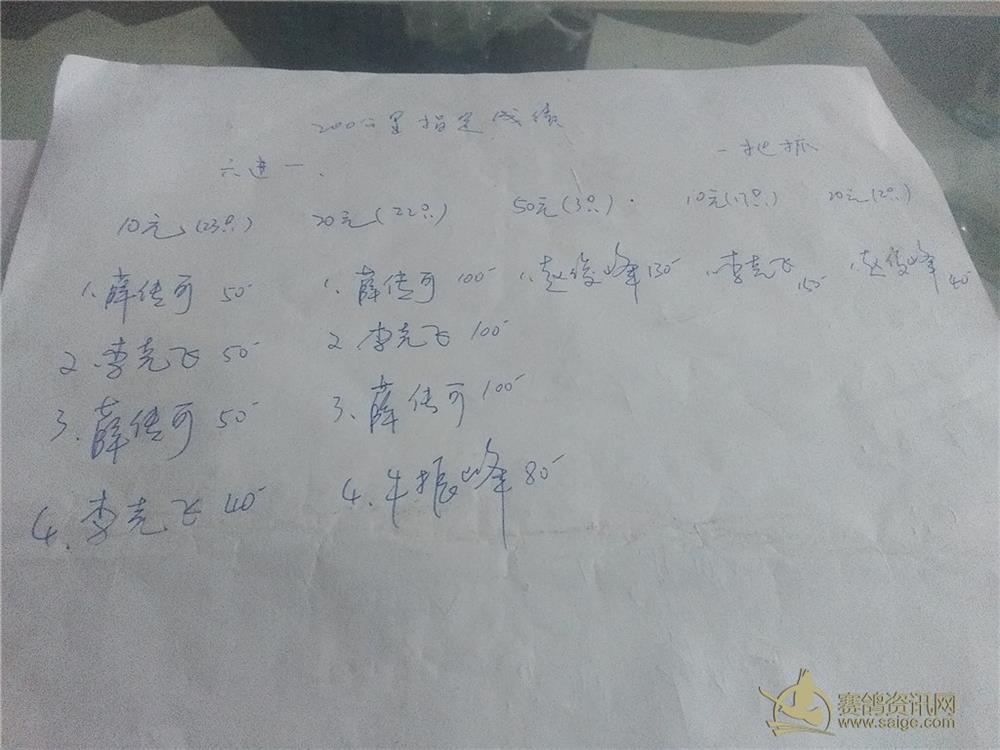 200公里指定成绩
六进一、 一把抓
10元(23只) 20元(22只) 50元(3只) 10元(17只) 20元(2只)
1、薛传可 50 1、薛传可 100 1、赵俊峰 150 1、李克飞 150 1、赵俊峰 40
2、李克飞 50 2、李克飞 100
3、薛传可 50 3、薛传可 100
4、李克飞 40 4、牛振峰 80
赛鸽资讯网
www.saige.com